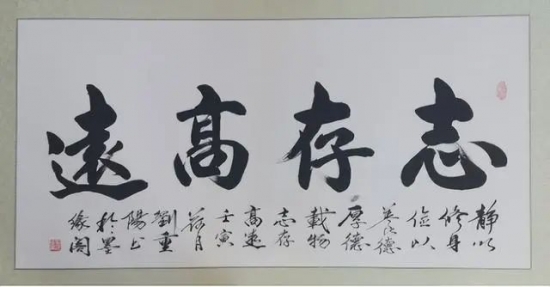 志存高遠
静以
修身
俭以
养德
厚德
載物
志存
高遠
壬寅
荷月
劉重
陽书
於墨
缘阁